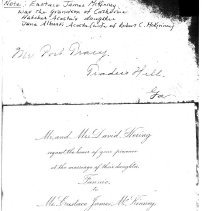 Note: Eustace James McKinney
was the grandson of Catherine
Hatcher Acosta's daughter
Jane Alberti Acosta (wife of Robert C. McKinney)
Traders Hill,
Ga.
Mr. and Mrs. David
request the honor of your presence
at the marriage of their daughter
Fannie,
to
Mr. Eustace James McKinney,